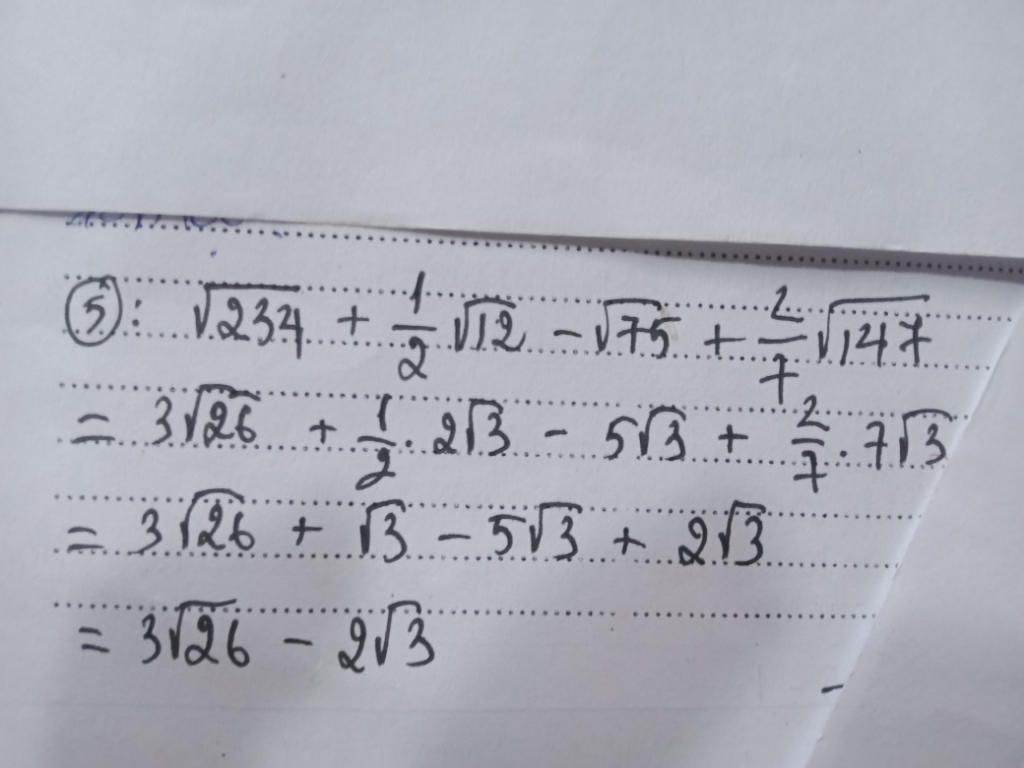 ⑤: √234 + 1/2 √12 − √75 + 2/7 √147
= 3√26 + 1/2 · 2√3 − 5√3 + 2/7 · 7√3
= 3√26 + √3 − 5√3 + 2√3
= 3√26 − 2√3